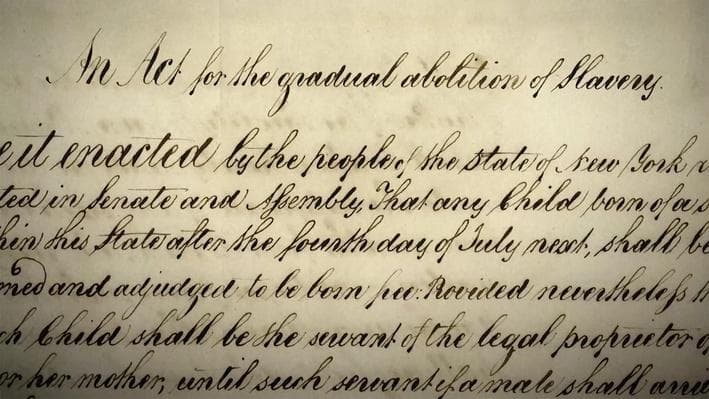 An Act for the gradual abolition of Slavery.
e it enacted by the people of the State of New York r
ted in Senate and Assembly, That any Child born of a s
hin this State after the fourth day of July next, shall be
med and adjudged to be born free: Provided nevertheless th
ch Child shall be the servant of the legal proprietor o
or her mother, until such servant if a male shall arri